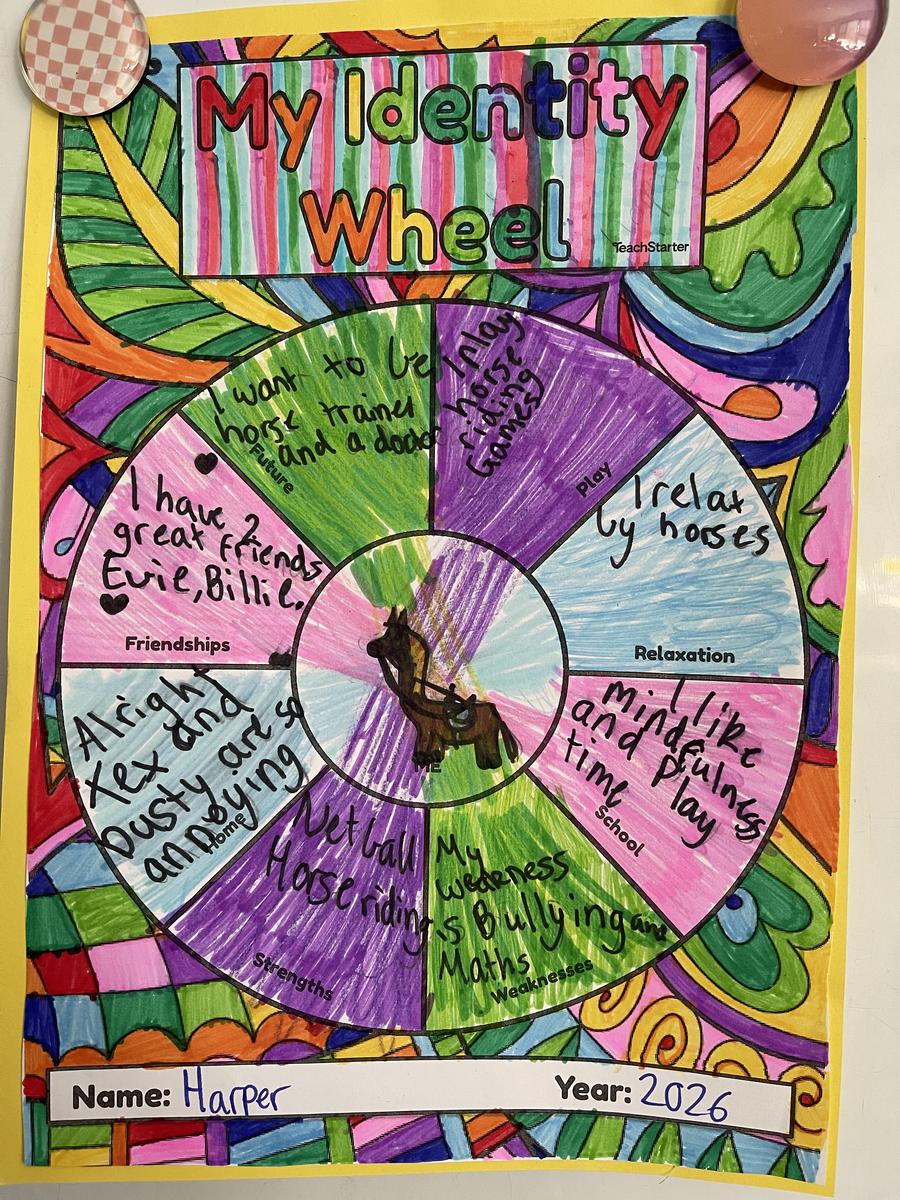 My Identity
Wheel
TeachStarter
I want to be
horse trainer
and a doctor
Future
I play
horse
riding
Games
Play
I relax
by horses
Relaxation
I like
mindfulness
and play
time
School
My
weakness
is Bullying and
Maths
Weaknesses
Netball
Horse riding
Strengths
Alright
Tex and
Dusty are so
annoying
Home
I have 2
great friends
Evie, Billie.
Friendships
ME
Name: Harper
Year: 2026